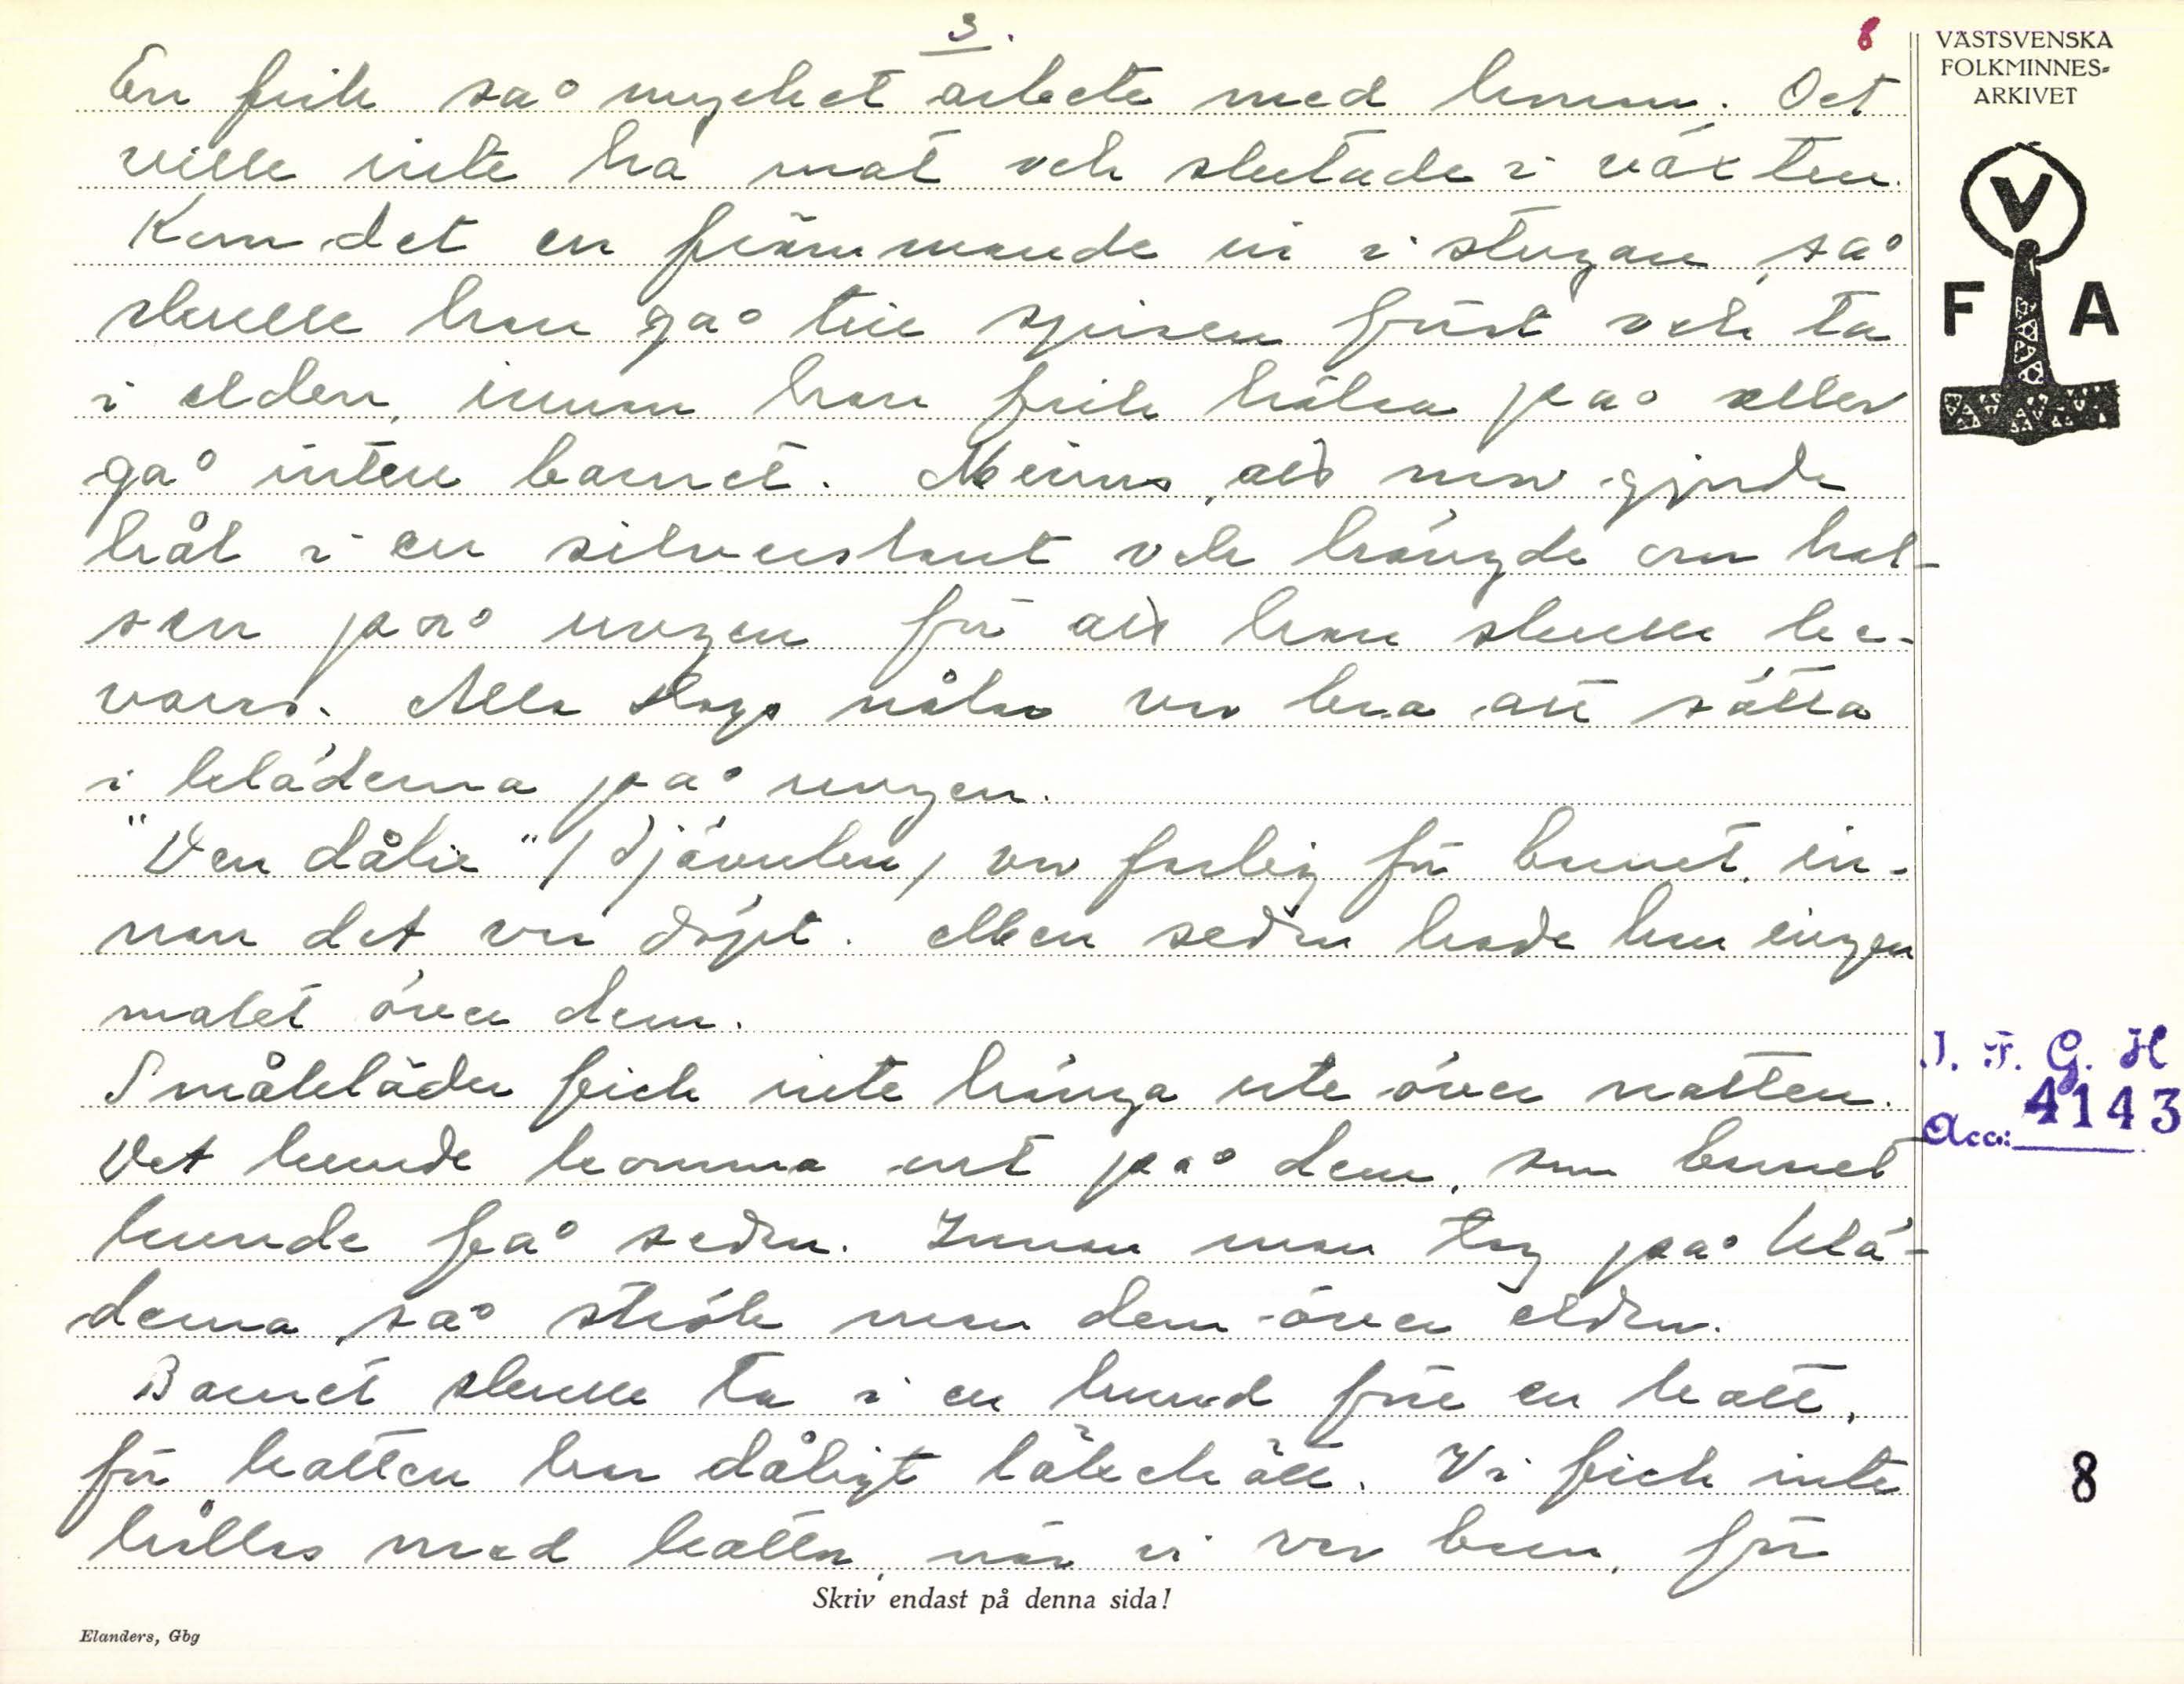 3.
8
En fick så mycket arbete med honom. Det
ville inte ha mat och slutade i växten.
Kom det en främmande in i stugan, så
skulle han gå till spisen först och ta
i elden, innan han fick hälsa på eller
gå inten barnet. Minns, att man gjorde
hål i en silverslant och hängde om hal-
sen på ungen för att han skulle be-
varas. Alla slags nålar var bra att sätta
i kläderna på ungen.
"Den dålie" /djävulen/ var farlig för barnet, in-
nan det var döpt. Men sedan hade han ingen
makt över dem.
Småkläder fick inte hänga ute över natten.
Det kunde komma ont på dem, som barnet
kunde få sedan. Innan man tog på klä-
derna, så strök man dem över elden.
Barnet skulle ta i en hund före en katt,
för katten har dåligt läkekött. Vi fick inte
hållas med katta, när vi var barn, för
Skriv endast på denna sida!
Elanders, Gbg
VÄSTSVENSKA
FOLKMINNES-
ARKIVET
V
F A
I. F. G. H
Acc: 4143
8